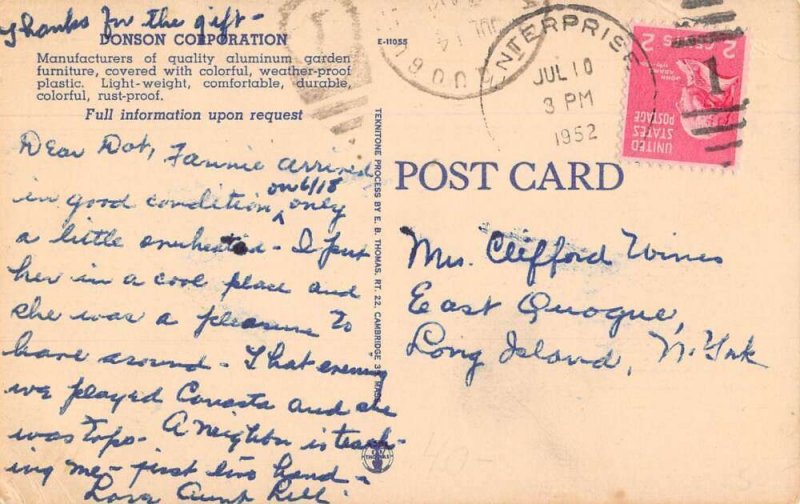 Thanks for the gift-
DONSON CORPORATION
Manufacturers of quality aluminum garden
furniture, covered with colorful, weather-proof
plastic. Light-weight, comfortable, durable,
colorful, rust-proof.
Full information upon request
E-11055
Dear Dot, Fannie arrived
in good condition, on 6/18 only
a little overheated - I put
her in a cool place and
she was a pleasure to
have around - That evening
we played Canasta and she
was tops - A neighbor is teach-
ing me - first two hand -
Love Aunt
TEXNITONE PROCESS BY E. B. THOMAS, RT. 22, CAMBRIDGE 39, MASS.
THOMAS
POST CARD
Mrs. Clifford Wines
East Quogue,
Long Island, N. York
ENTERPRISE
JUL 10
3 PM
1952
JUL 14
UNITED
STATES
POSTAGE
2 CTS 2